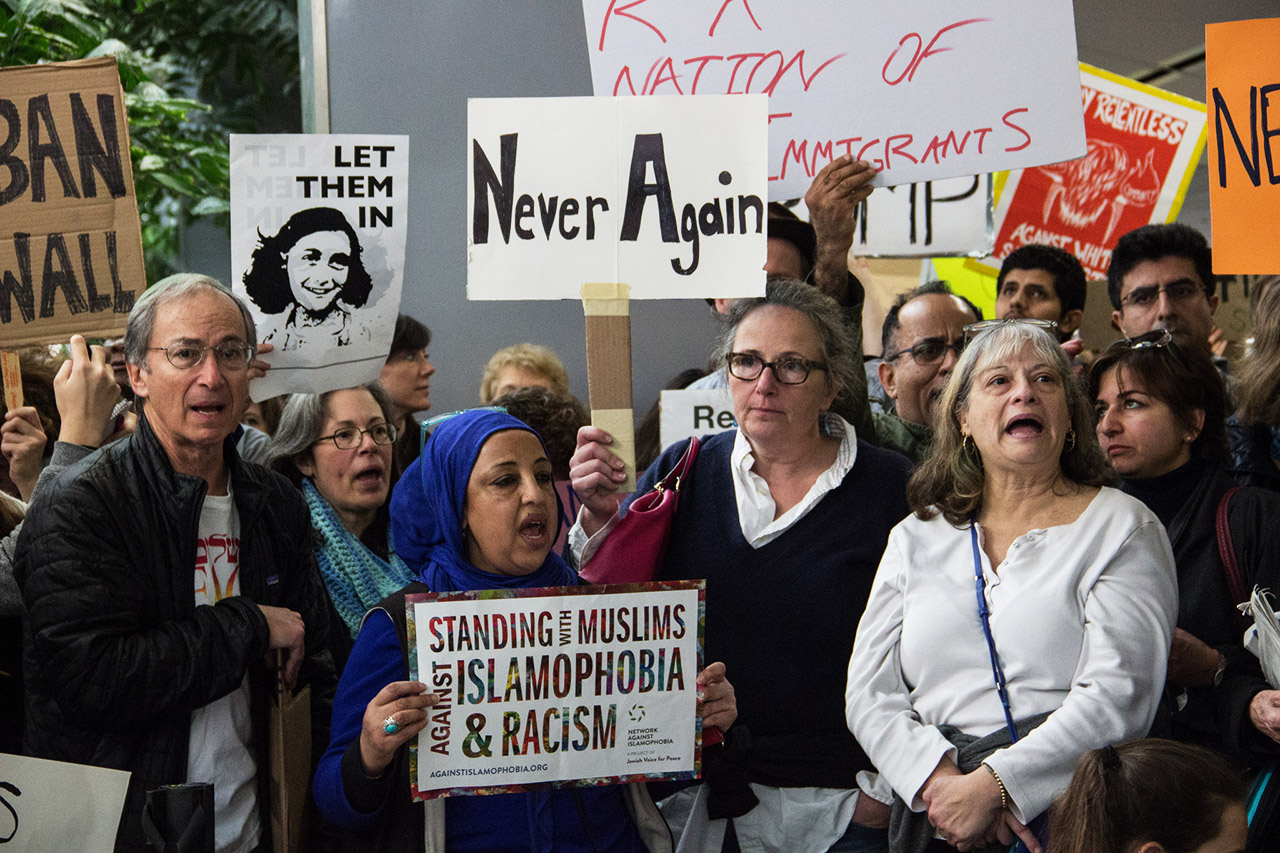 BAN
WALL
LET
THEM
IN
Never Again
NATION OF
IMMIGRANTS
RELENTLESS
AGAINST WHIT
NE
Re
STANDING WITH MUSLIMS
AGAINST
ISLAMOPHOBIA
& RACISM
NETWORK
AGAINST
ISLAMOPHOBIA
A PROJECT OF
Jewish Voice for Peace
AGAINSTISLAMOPHOBIA.ORG